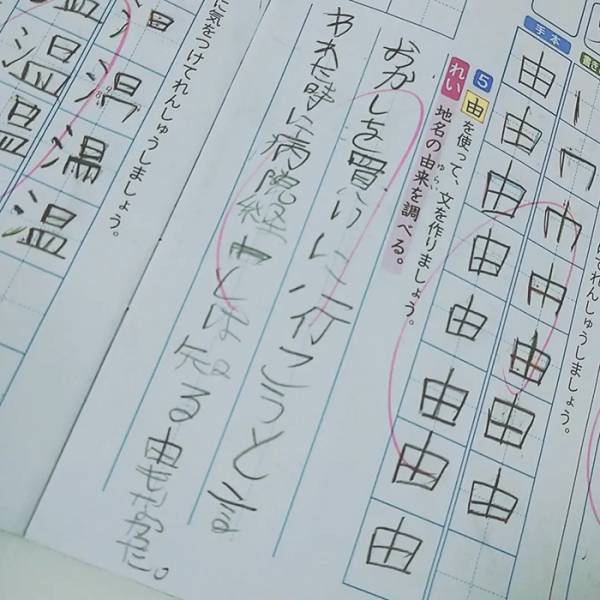 書き
手本
由
由
由
由
由
由
由
由
由
由
由
け てれんしゅうしましょう。
5 由を使って、文を作りましょう。
れい 地名の由来を調べる。
ゆらい
おかしを買いに行こうと言
われた時に病院経由とは知る由もなかった。
に気をつけてれんしゅうしましょう。
温
温
温
温